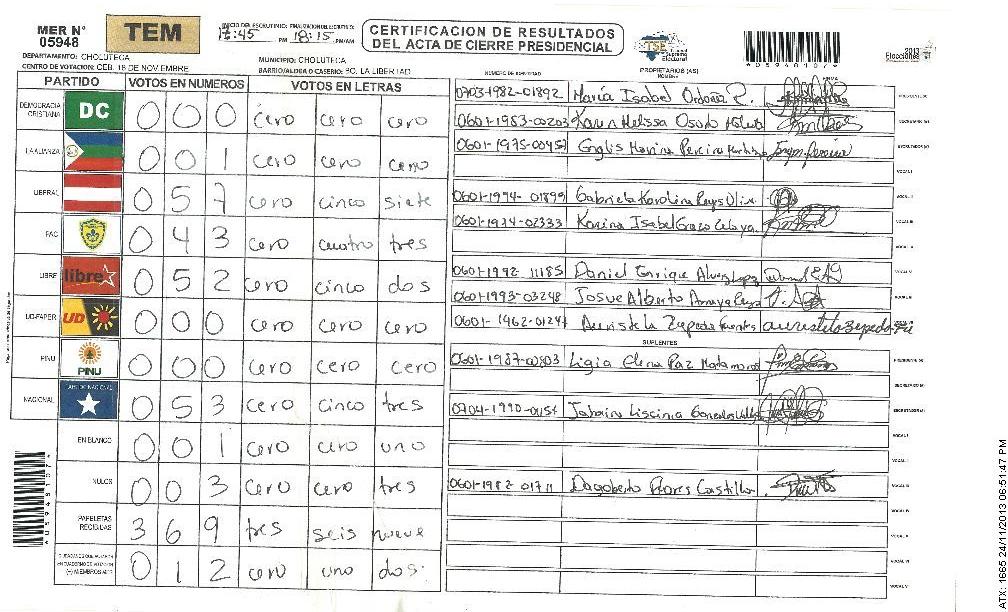 MER N° 05948
TEM
INICIO DEL ESCRUTINIO: 17:45 PM
FINALIZACION DEL ESCRUTINIO: 18:15 PM/AM
CERTIFICACION DE RESULTADOS DEL ACTA DE CIERRE PRESIDENCIAL
TSE Tribunal Supremo Electoral
2013 Elecciones
DEPARTAMENTO: CHOLUTECA
MUNICIPIO: CHOLUTECA
CENTRO DE VOTACION: CEB. 18 DE NOVIEMBRE
BARRIO/ALDEA O CASERIO: BO. LA LIBERTAD
PARTIDO VOTOS EN NUMEROS VOTOS EN LETRAS
DEMOCRACIA CRISTIANA DC 0 0 0 cero cero cero
FAALIANZA 0 0 1 cero cero cero
LIBERAL 0 5 7 cero cinco siete
PAC 0 4 3 cero cuatro tres
LIBRE libre 0 5 2 cero cinco dos
UD-FAPER UD 0 0 0 cero cero cero
PINU PINU 0 0 0 cero cero cero
NACIONAL 0 5 3 cero cinco tres
EN BLANCO 0 0 1 cero cero uno
NULOS 0 0 3 cero cero tres
PAPELETAS RECIBIDAS 3 6 9 tres seis nueve
0 1 2 cero uno dos
NUMERO DE IDENTIDAD PROPIETARIOS (AS) NOMBRE FIRMA
0703-1982-01892 María Isabel Ordoñez R. PRESIDENTE (A)
0601-1983-00203 Karen Melissa Osorto SECRETARIO (A)
0601-1975-00457 Pereira ESCRUTADOR (A)
VOCAL I
0601-1994-01899 Gabriela Karolina Reyes Oliva VOCAL II
0601-1974-02333 Karina Isabel Zelaya VOCAL III
0601-1992-11185 Daniel Enrique Alvarez Lopez
0601-1993-03248 Josue Alberto Amaya
0601-1962-01247 Auristela Zepeda Fuentes
SUPLENTES
0601-1987-00803 Ligia Elena Paz Matamoros PRESIDENTE (A)
SECRETARIO (A)
0704-1990-0154 Gonzales ESCRUTADOR (A)
VOCAL I
0601-1982-01711 Dagoberto Flores Castillo VOCAL III
VOCAL VI
VOCAL V
*05948107*
ATX: 1665 24/11/2013 06:51:47 PM